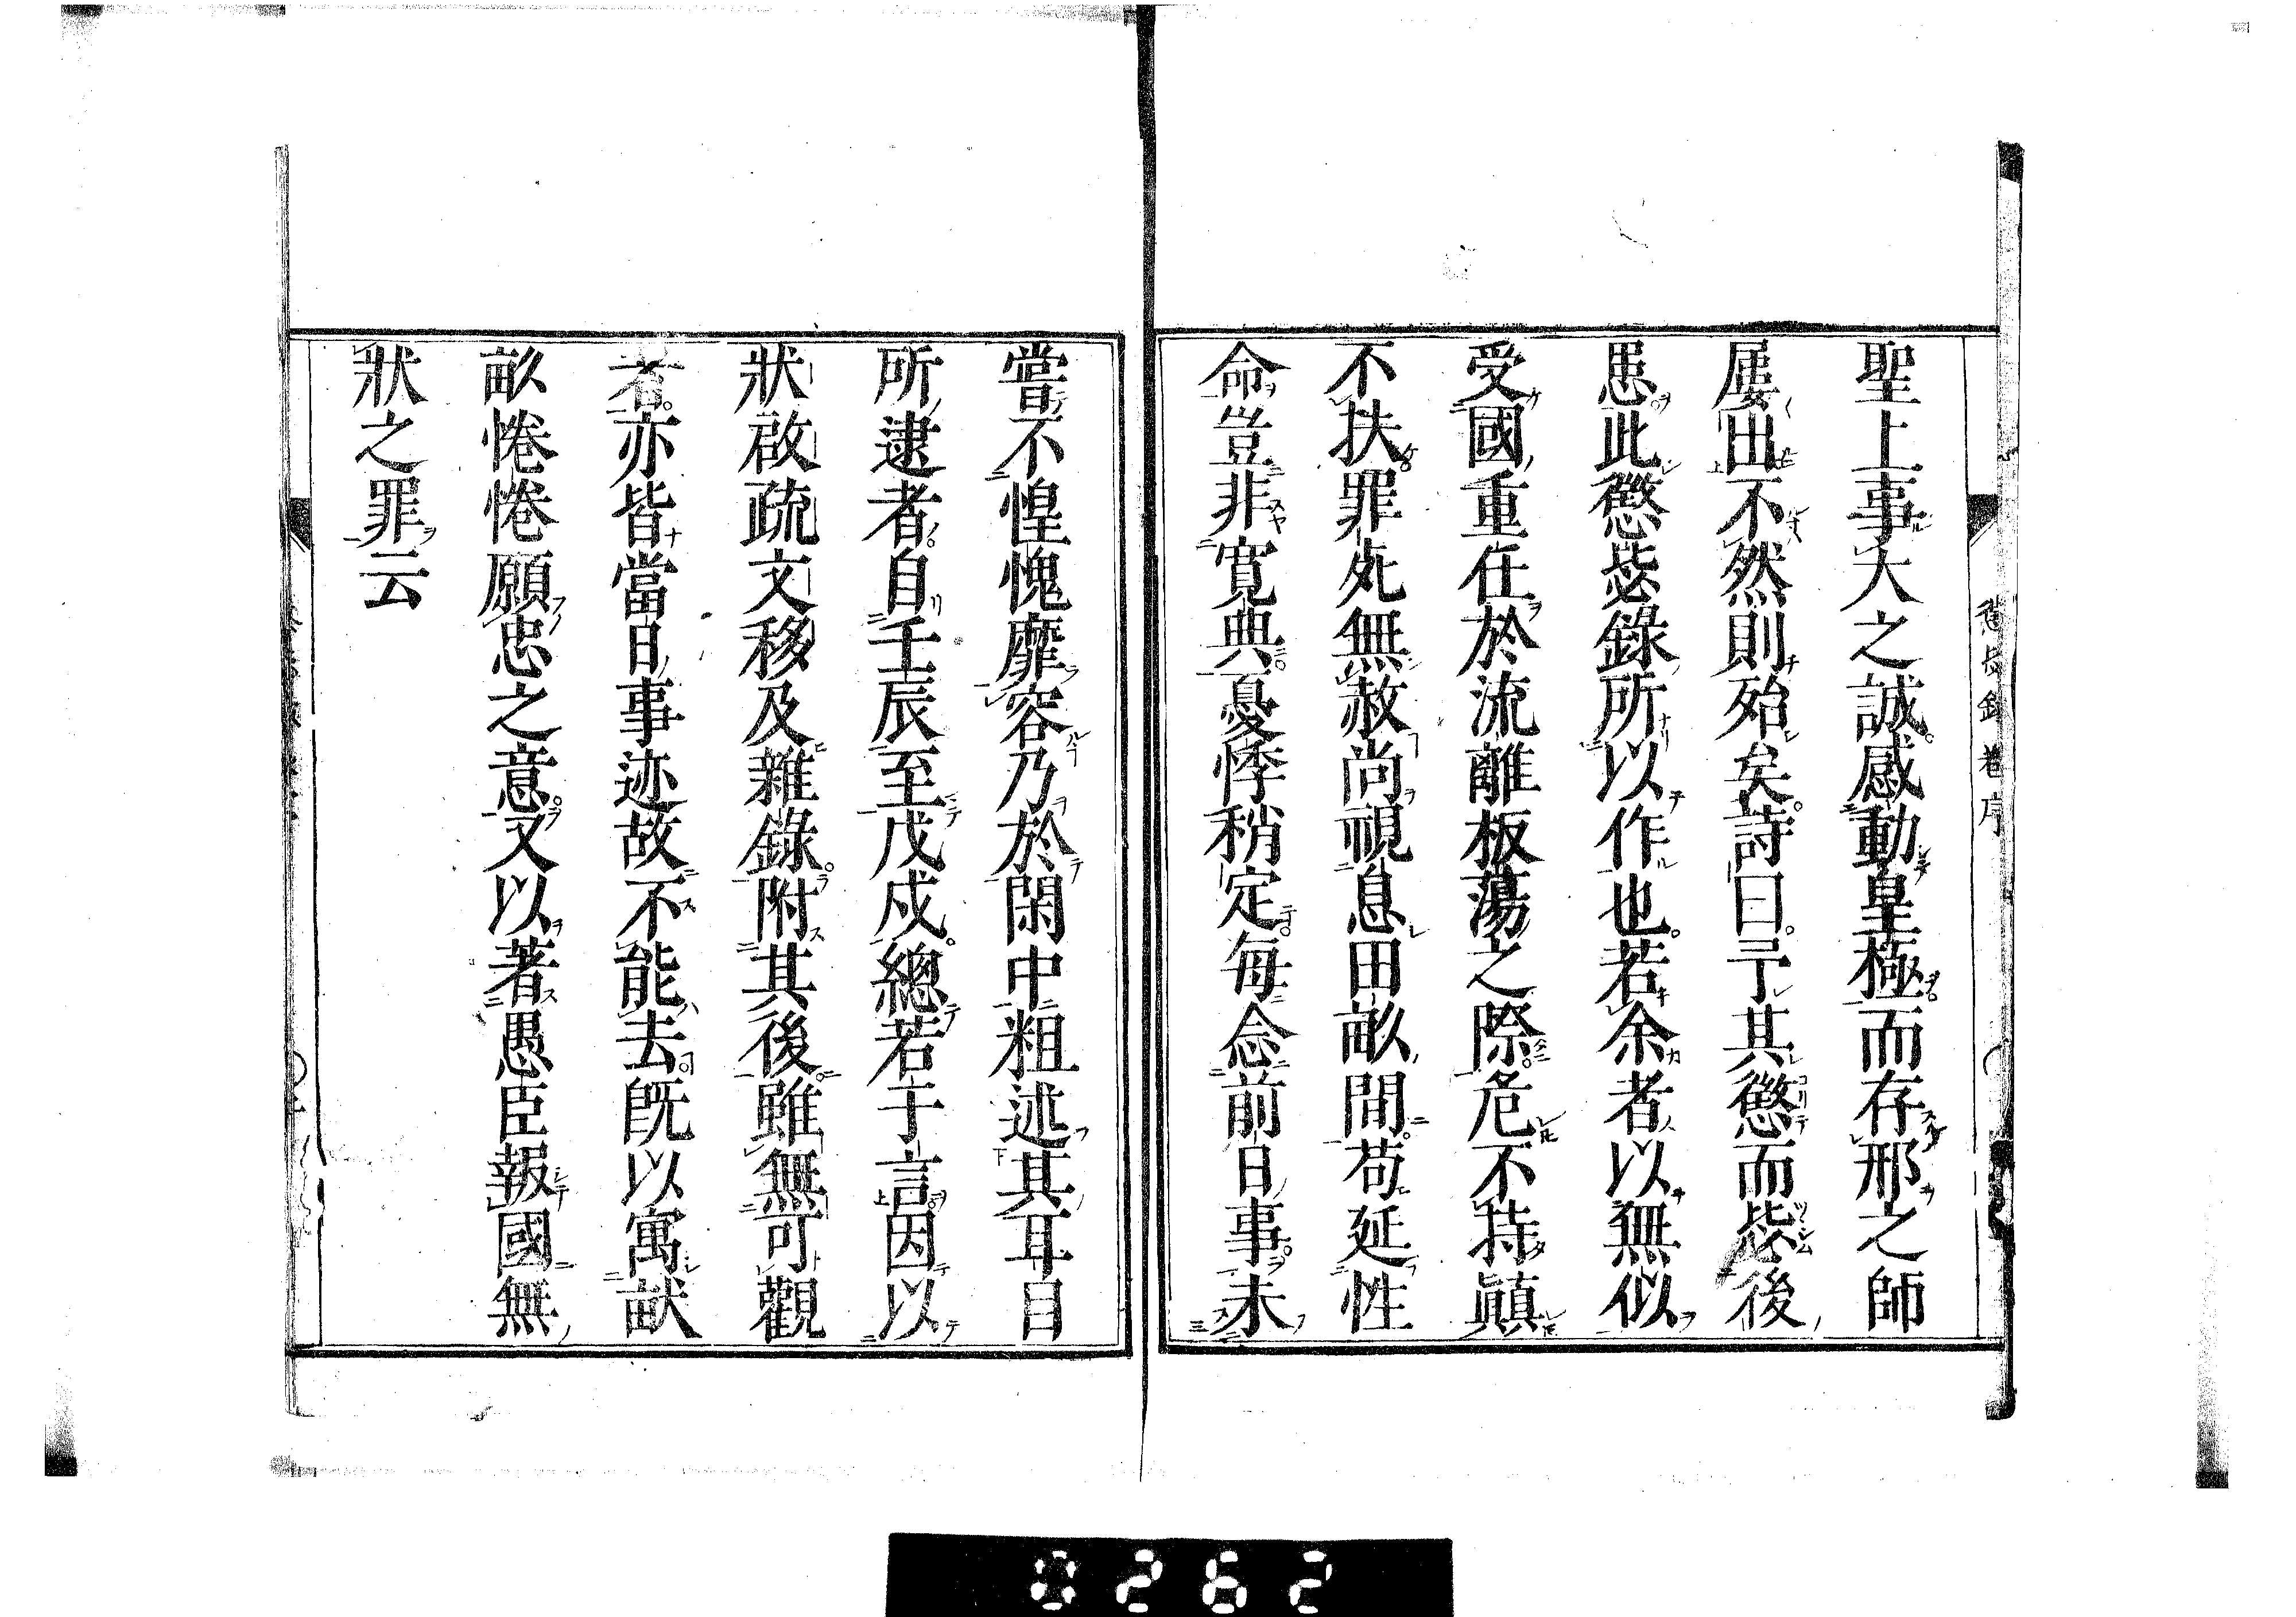 聖上事大之誠感動皇極而存邢之師
屢出不然則殆矣詩曰予其懲而毖後
患此懲毖錄所以作也若余者以無似
受國重任於流離板蕩之際危不持顚
不扶罪死無赦尚視息田畝間苟延性
命豈非寬典憂悸稍定每念前日事未
嘗不惶愧靡容乃於閑中粗述其耳目
所逮者自壬辰至戊戍總若干言因以
狀啟疏文移及雜錄附其後雖無可觀
者亦皆當日事迹故不能去旣以寓畎
畝惓惓願忠之意又以著愚臣報國無
狀之罪云
懲毖錄 卷序
0262